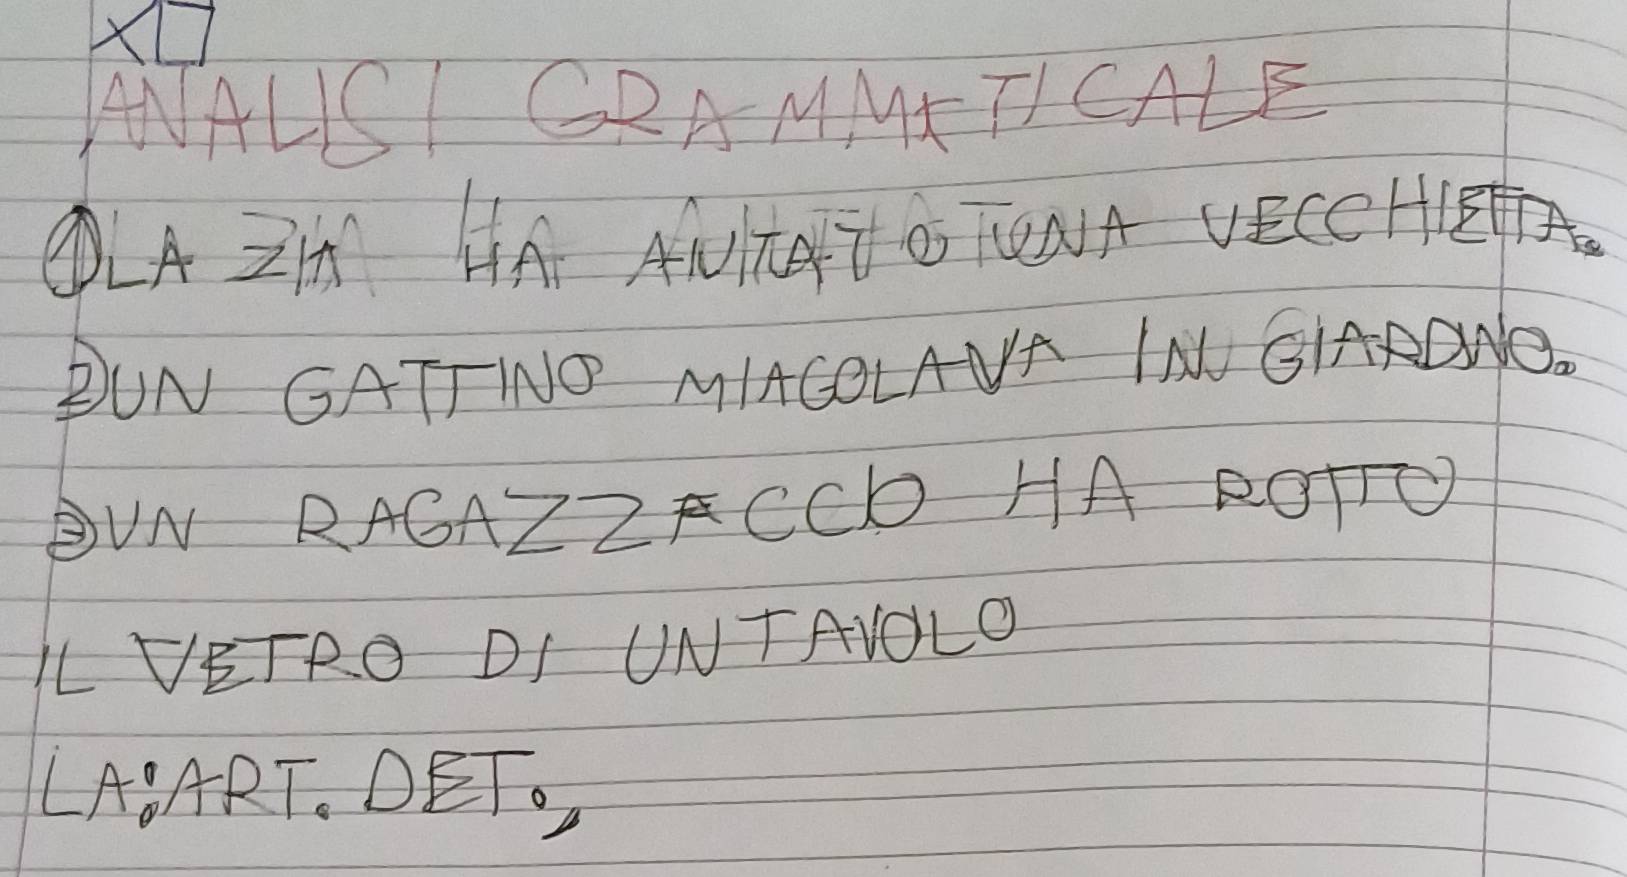 X□
ANALISI GRAMMATICALE
① LA ZIA HA AIUTATO UNA VECCHIETTA.
② UN GATTINO MIAGOLAVA IN GIARDINO.
③ UN RAGAZZACCIO HA ROTTO
IL VETRO DI UN TAVOLO
LA: ART. DET.,